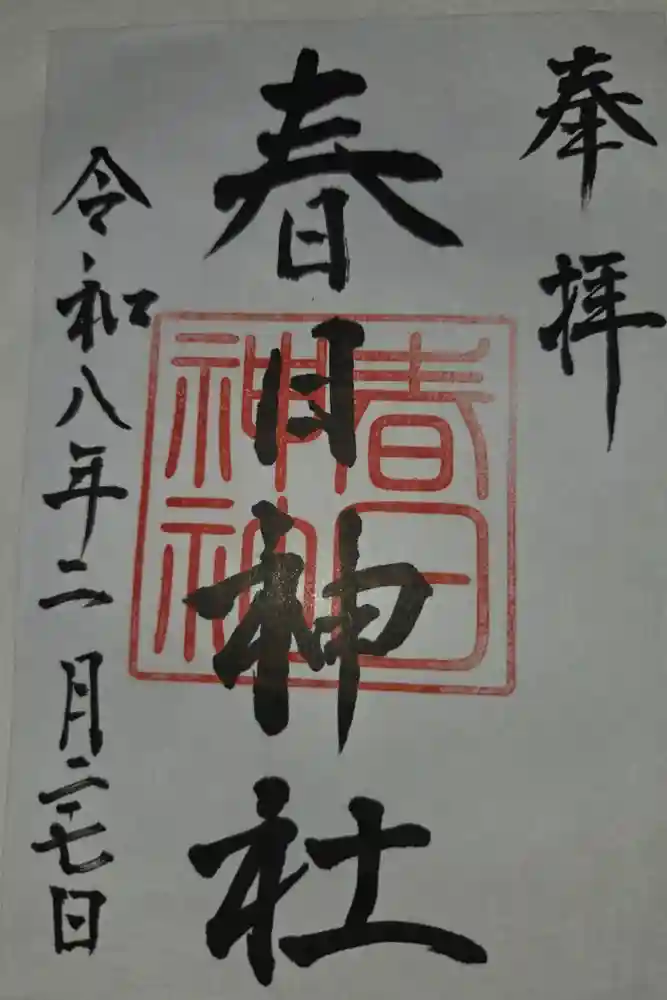 奉拝
春日神社
春日神社
令和八年二月二十七日